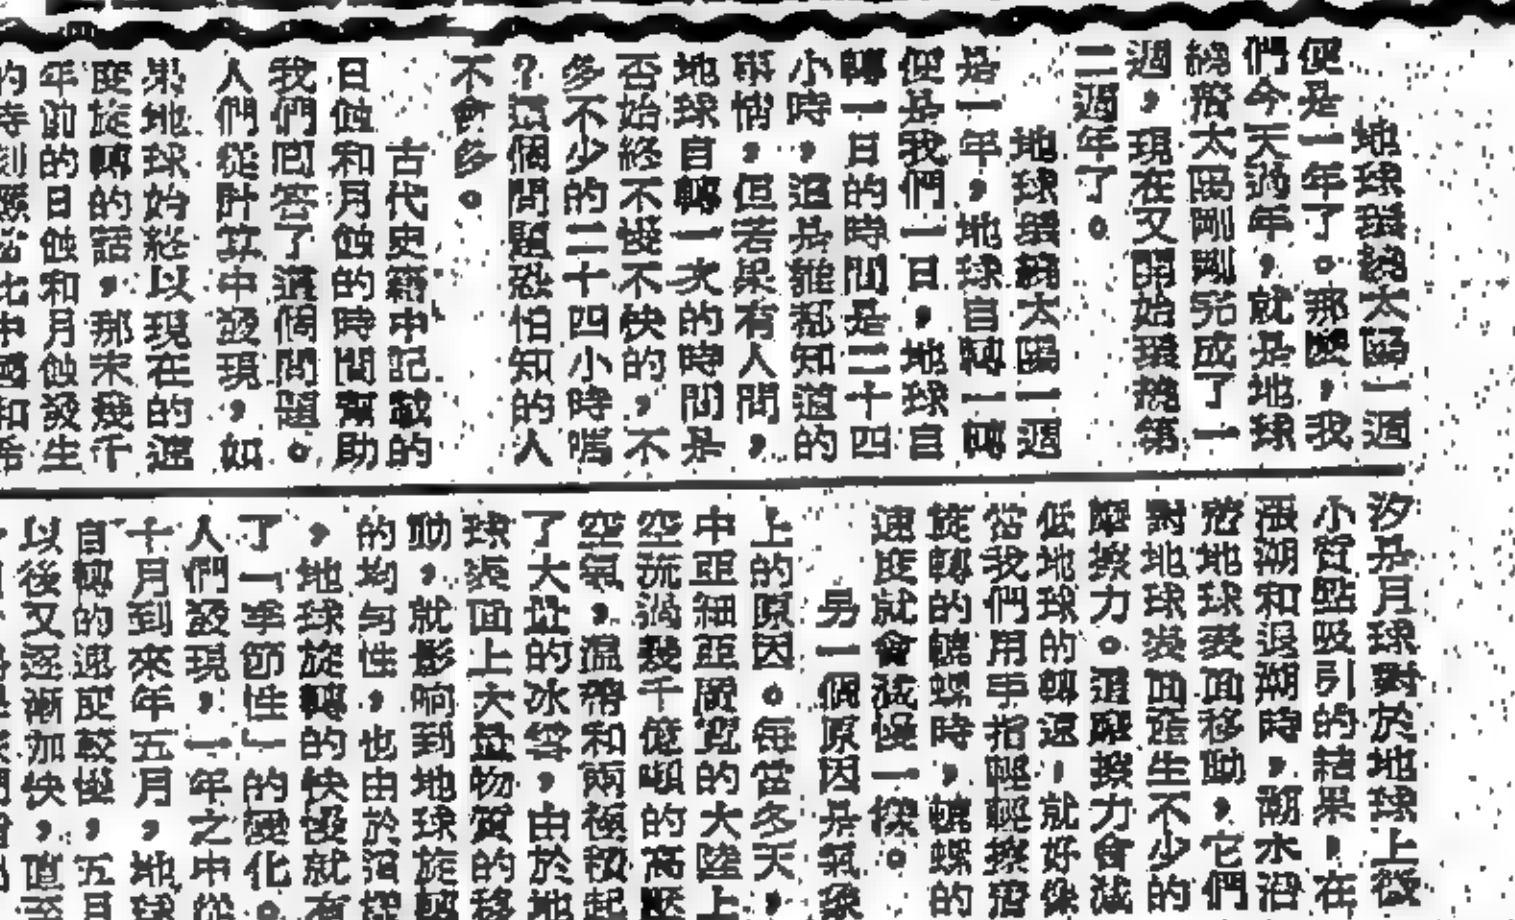 地球環繞太陽一週
便是一年了。那麼，我
們今天過年，就是地球
繞着太陽剛剛完成了一
週，現在又開始環繞第
二週年了。
地球環繞太陽一週
是一年，地球自轉一轉
便是我們一日，地球自
轉一日的時間是二十四
小時，這是誰都知道的
事情，但若果有人問，
地球自轉一次的時間是
否始終不慢不快的，不
多不少的二十四小時嗎
？這個問題恐怕知的人
不會多。
古代史籍中記載的
日蝕和月蝕的時間幫助
我們回答了這個問題。
人們從計算中發現，如
果地球始終以現在的速
度旋轉的話，那末幾千
年前的日蝕和月蝕發生
的時刻應當比中國和希
汐是月球對於地球上微
小質點吸引的結果，在
漲潮和退潮時，潮水沿
着地球表面移動，它們
對地球表面產生不少的
磨擦力。這磨擦力會減
低地球的轉速，就好像
當我們用手指輕輕擦着
旋轉的轆螺時，轆螺的
速度就會減慢一樣。
另一個原因是氣象
上的原因。每當冬天，
中亞細亞廣寬的大陸上
空流過幾千億噸的高壓
空氣，溫帶和兩極積起
了大量的冰雪，由於地
球表面上大量物質的移
動，就影响到地球旋轉
的均勻性，也由於這
，地球旋轉的快慢就有
了「季節性」的變化。
人們發現，一年之中從
十月到來年五月，地球
自轉的速度較慢，五月
以後又逐漸加快，直至